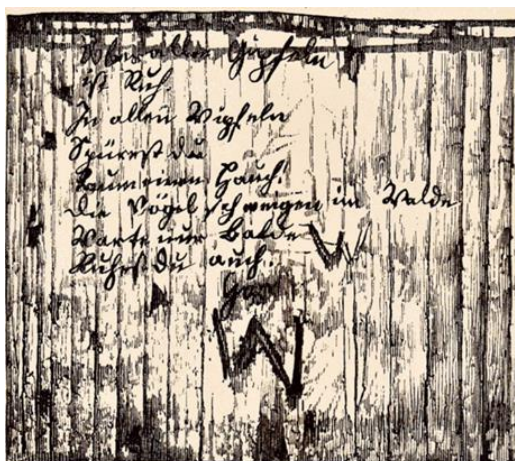 Über allen Gipfeln
ist Ruh,
In allen Wipfeln
Spürest du
Kaum einen Hauch!
Die Vögel schweigen im Walde
Warte nur Balde
W
Ruhest du auch.
W